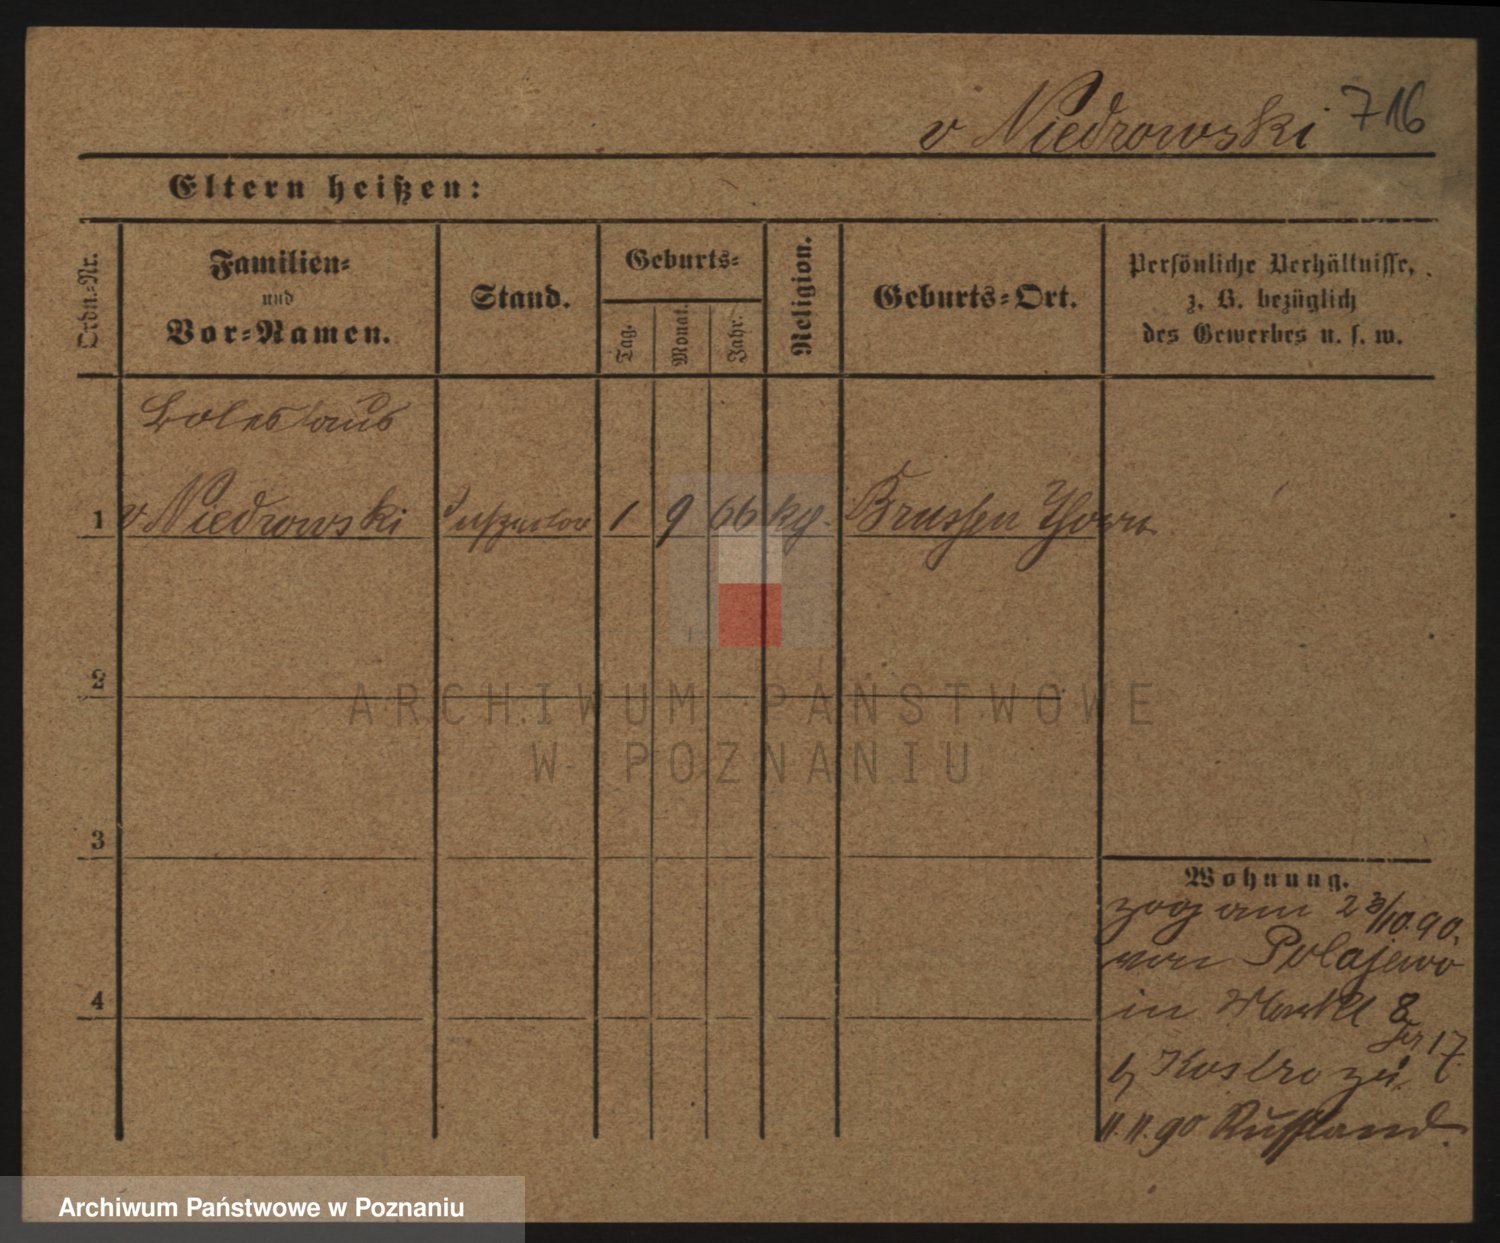 v Niedrowski 716
Eltern heißen:
Ordn.-Nr.
Familien-
und
Vor-Namen.
Stand.
Geburts-
Tag.
Monat.
Jahr.
Religion.
Geburts-Ort.
Persönliche Verhältnisse,
z. B. bezüglich
des Gewerbes u. s. w.
Boleslaus
1 v. Niedrowski Inspector 1 9 66 kg. Thorn
2
3
4
Wohnung.
zog am 23/10.90.
von Polajewo
in 8
17
b/ Kostro zu
11.11.90 Rußland.
ARCHIWUM PAŃSTWOWE
W POZNANIU
Archiwum Państwowe w Poznaniu